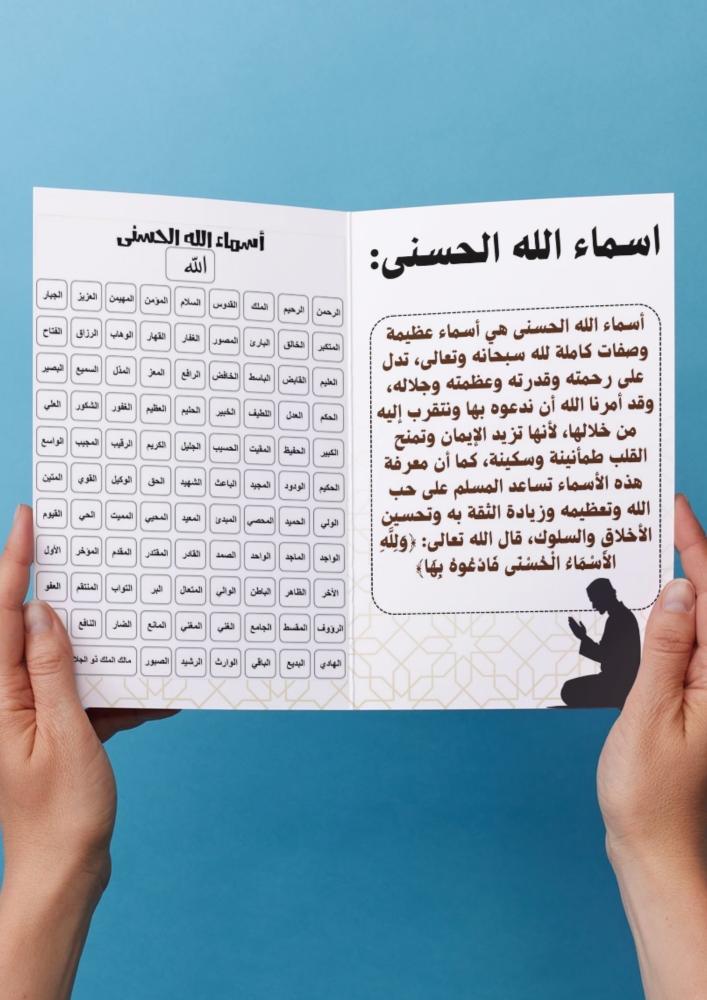 اسماء الله الحسنى:
أسماء الله الحسنى هي أسماء عظيمة
وصفات كاملة لله سبحانه وتعالى، تدل
على رحمته وقدرته وعظمته وجلاله،
وقد أمرنا الله أن ندعوه بها ونتقرب إليه
من خلالها، لأنها تزيد الإيمان وتمنح
القلب طمأنينة وسكينة، كما أن معرفة
هذه الأسماء تساعد المسلم على حب
الله وتعظيمه وزيادة الثقة به وتحسين
الأخلاق والسلوك، قال الله تعالى: ﴿وَلِلَّهِ
الْأَسْمَاءُ الْحُسْنَى فَادْعُوهُ بِهَا﴾
أسماء الله الحسنى
الله
الرحمن الرحيم الملك القدوس السلام المؤمن المهيمن العزيز الجبار
المتكبر الخالق البارئ المصور الغفار القهار الوهاب الرزاق الفتاح
العليم القابض الباسط الخافض الرافع المعز المذل السميع البصير
الحكم العدل اللطيف الخبير الحليم العظيم الغفور الشكور العلي
الكبير الحفيظ المقيت الحسيب الجليل الكريم الرقيب المجيب الواسع
الحكيم الودود المجيد الباعث الشهيد الحق الوكيل القوي المتين
الولي الحميد المحصي المبدئ المعيد المحيي المميت الحي القيوم
الواجد الماجد الواحد الصمد القادر المقتدر المقدم المؤخر الأول
الآخر الظاهر الباطن الوالي المتعال البر التواب المنتقم العفو
الرؤوف المقسط الجامع الغني المغني المانع الضار النافع
الهادي البديع الباقي الوارث الرشيد الصبور مالك الملك ذو الجلا